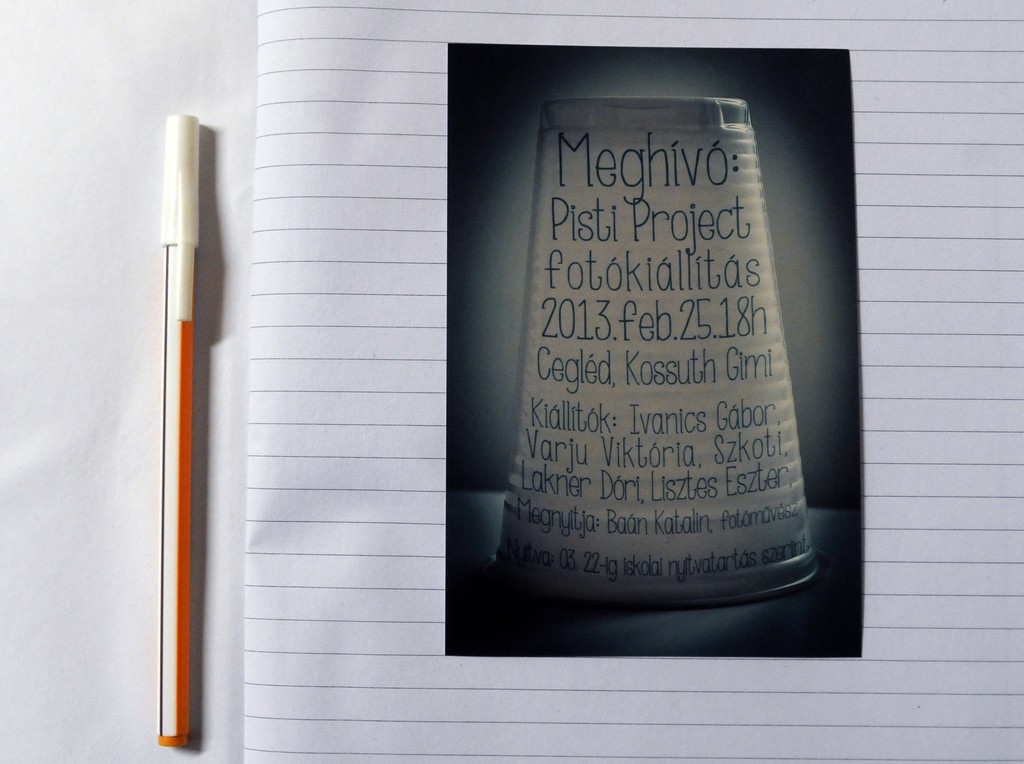 Meghívó:
Pisti Project
fotókiállítás
2013.feb.25.18h
Cegléd, Kossuth Gimi
Kiállítók: Ivanics Gábor,
Varju Viktória, Szkoti,
Lakner Dóri, Lisztes Eszter,
Megnyitja: Baán Katalin, fotóművész
Nyitva: 03. 22-ig iskolai nyitvatartás szerint